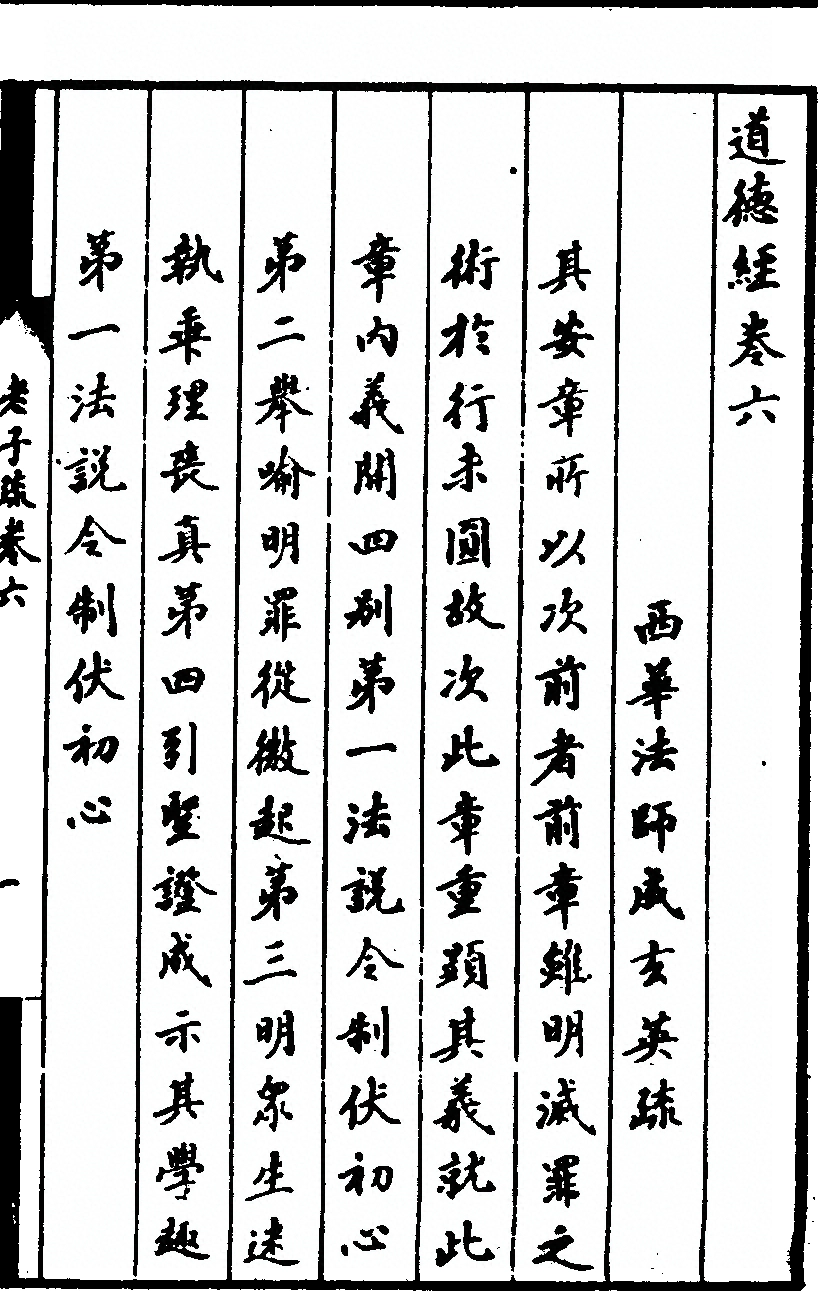 道德經卷六
西華法師成玄英疏
其安章所以次前者前章雖明滅罪之
術於行未圓故次此章重顯其義就此
章內義開四別第一法說令制伏初心
第二舉喻明罪從微起第三明衆生迷
執乖理喪真第四引聖證成示其學趣
第一法說令制伏初心
老子疏卷六
一